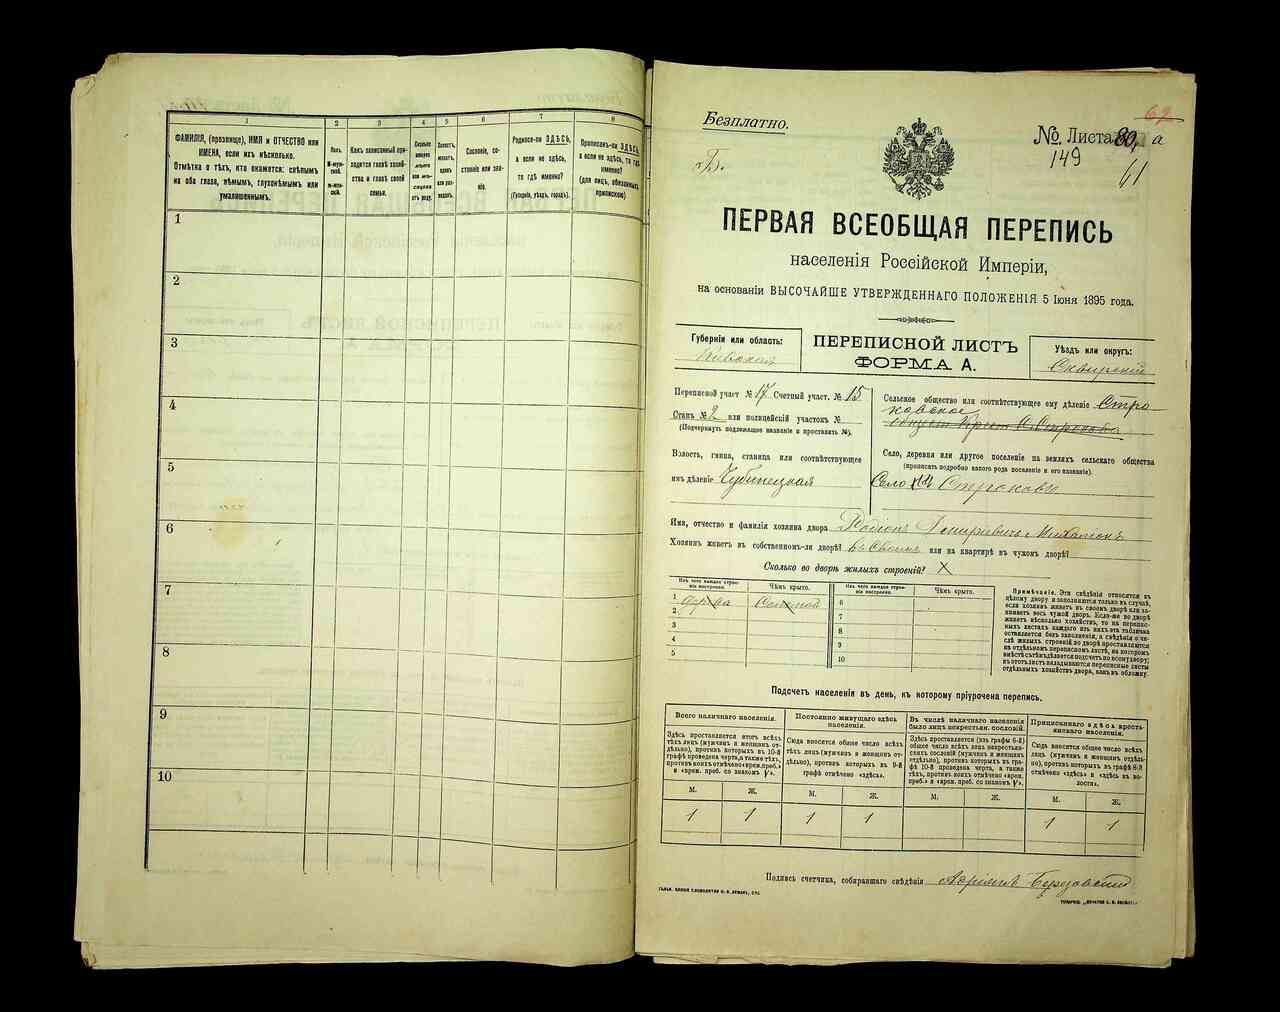 1
ФАМИЛІЯ, (прозвище), ИМЯ и ОТЧЕСТВО или
ИМЕНА, если ихъ нѣсколько.
Отмѣтка о тѣхъ, кто окажется: слѣпымъ
на оба глаза, нѣмымъ, глухонѣмымъ или
умалишеннымъ.
2
Полъ.
М-мужской.
Ж-женскій.
3
Какъ записанный приходится
главѣ хозяйства
и главѣ своей
семьи.
4
Сколько
минуло
лѣтъ
или мѣсяцевъ
отъ роду.
5
6
Сословіе, состояніе
или званіе.
7
Родился-ли ЗДѢСЬ,
а если не здѣсь,
то гдѣ именно?
(Губернія, уѣздъ, городъ).
8
Приписанъ-ли ЗДѢСЬ,
а если не здѣсь, то гдѣ
именно?
(для лицъ, обязанныхъ
припискою)
1
2
3
4
5
6
7
8
9
10
62
Безплатно.
№ Листа 80, а
149
61
Б.
ПЕРВАЯ ВСЕОБЩАЯ ПЕРЕПИСЬ
населенія Россійской Имперіи,
на основаніи ВЫСОЧАЙШЕ УТВЕРЖДЕННАГО ПОЛОЖЕНІЯ 5 Іюня 1895 года.
Губернія или область:
Кіевская
ПЕРЕПИСНОЙ ЛИСТЪ
ФОРМА А.
Уѣздъ или округъ:
Сквирскій
Переписной участ № 17 Счетный участ. № 15
Станъ № 2 или полицейскій участокъ №
(Подчеркнуть подлежащее названіе и проставить №).
Волость, гмина, станица или соотвѣтствующее
имъ дѣленіе Чубинецкая
Сельское общество или соотвѣтствующее ему дѣленіе Стро-
ковское
Село, деревня или другое поселеніе на земляхъ сельскаго общества
(прописать подробно какого рода поселеніе и его названіе).
Село Строковъ
Имя, отчество и фамилія хозяина двора Родіонъ Дмитріевичъ
Хозяинъ живетъ въ собственномъ-ли дворѣ? въ своемъ или на квартирѣ въ чужомъ дворѣ?
Сколько во дворѣ жилыхъ строеній? X
Изъ чего каждое строеніе построено.
Чѣмъ крыто.
Изъ чего каждое строеніе построено.
Чѣмъ крыто.
1 Дерева Соломой
2
3
4
5
6
7
8
9
10
Примѣчаніе. Эти свѣдѣнія относятся къ
цѣлому двору и заполняются только въ случаѣ,
если хозяинъ живетъ въ своемъ дворѣ или занимаетъ
весь чужой дворъ. Если-же во дворѣ
живетъ нѣсколько хозяйствъ, то на переписныхъ
листахъ каждаго изъ нихъ эта табличка
оставляется безъ заполненія, а свѣдѣнія о числѣ
жилыхъ строеній во дворѣ проставляются
на отдѣльномъ переписномъ листѣ, на которомъ
вмѣстѣ съ тѣмъ дѣлается подсчетъ по всему двору;
въ этотъ листъ вкладываются переписные листы
отдѣльныхъ хозяйствъ двора, какъ въ обложку.
Подсчетъ населенія въ день, къ которому пріурочена перепись.
Всего наличнаго населенія.
Здѣсь проставляется итогъ всѣхъ
тѣхъ лицъ (мужчинъ и женщинъ отдѣльно),
противъ которыхъ въ 10-й
графѣ проведена черта, а также тѣхъ,
противъ коихъ отмѣчено «врем. преб.»
и «врем. преб. со знакомъ V».
Постоянно живущаго здѣсь
населенія.
Сюда вносится общее число всѣхъ
тѣхъ лицъ (мужчинъ и женщинъ отдѣльно),
противъ которыхъ въ 9-й
графѣ отмѣчено «здѣсь».
Въ числѣ наличнаго населенія
было лицъ некрестьян. сословій.
Здѣсь проставляется (изъ графы 6-й)
общее число всѣхъ лицъ некрестьянскихъ
сословій (мужчинъ и женщинъ
отдѣльно), противъ которыхъ въ графѣ
10-й проведена черта, а также
тѣхъ, противъ коихъ отмѣчено «врем.
преб.» и «врем. преб. со знакомъ V».
Приписаннаго здѣсь крестьянскаго
населенія.
Сюда вносится общее число всѣхъ
лицъ (мужчинъ и женщинъ отдѣльно),
противъ которыхъ въ графѣ 8-й
отмѣчено «здѣсь» и «здѣсь въ волости».
М. Ж. М. Ж. М. Ж. М. Ж.
1 1 1 1 1 1
Подпись счетчика, собиравшаго свѣдѣнія Березовскій